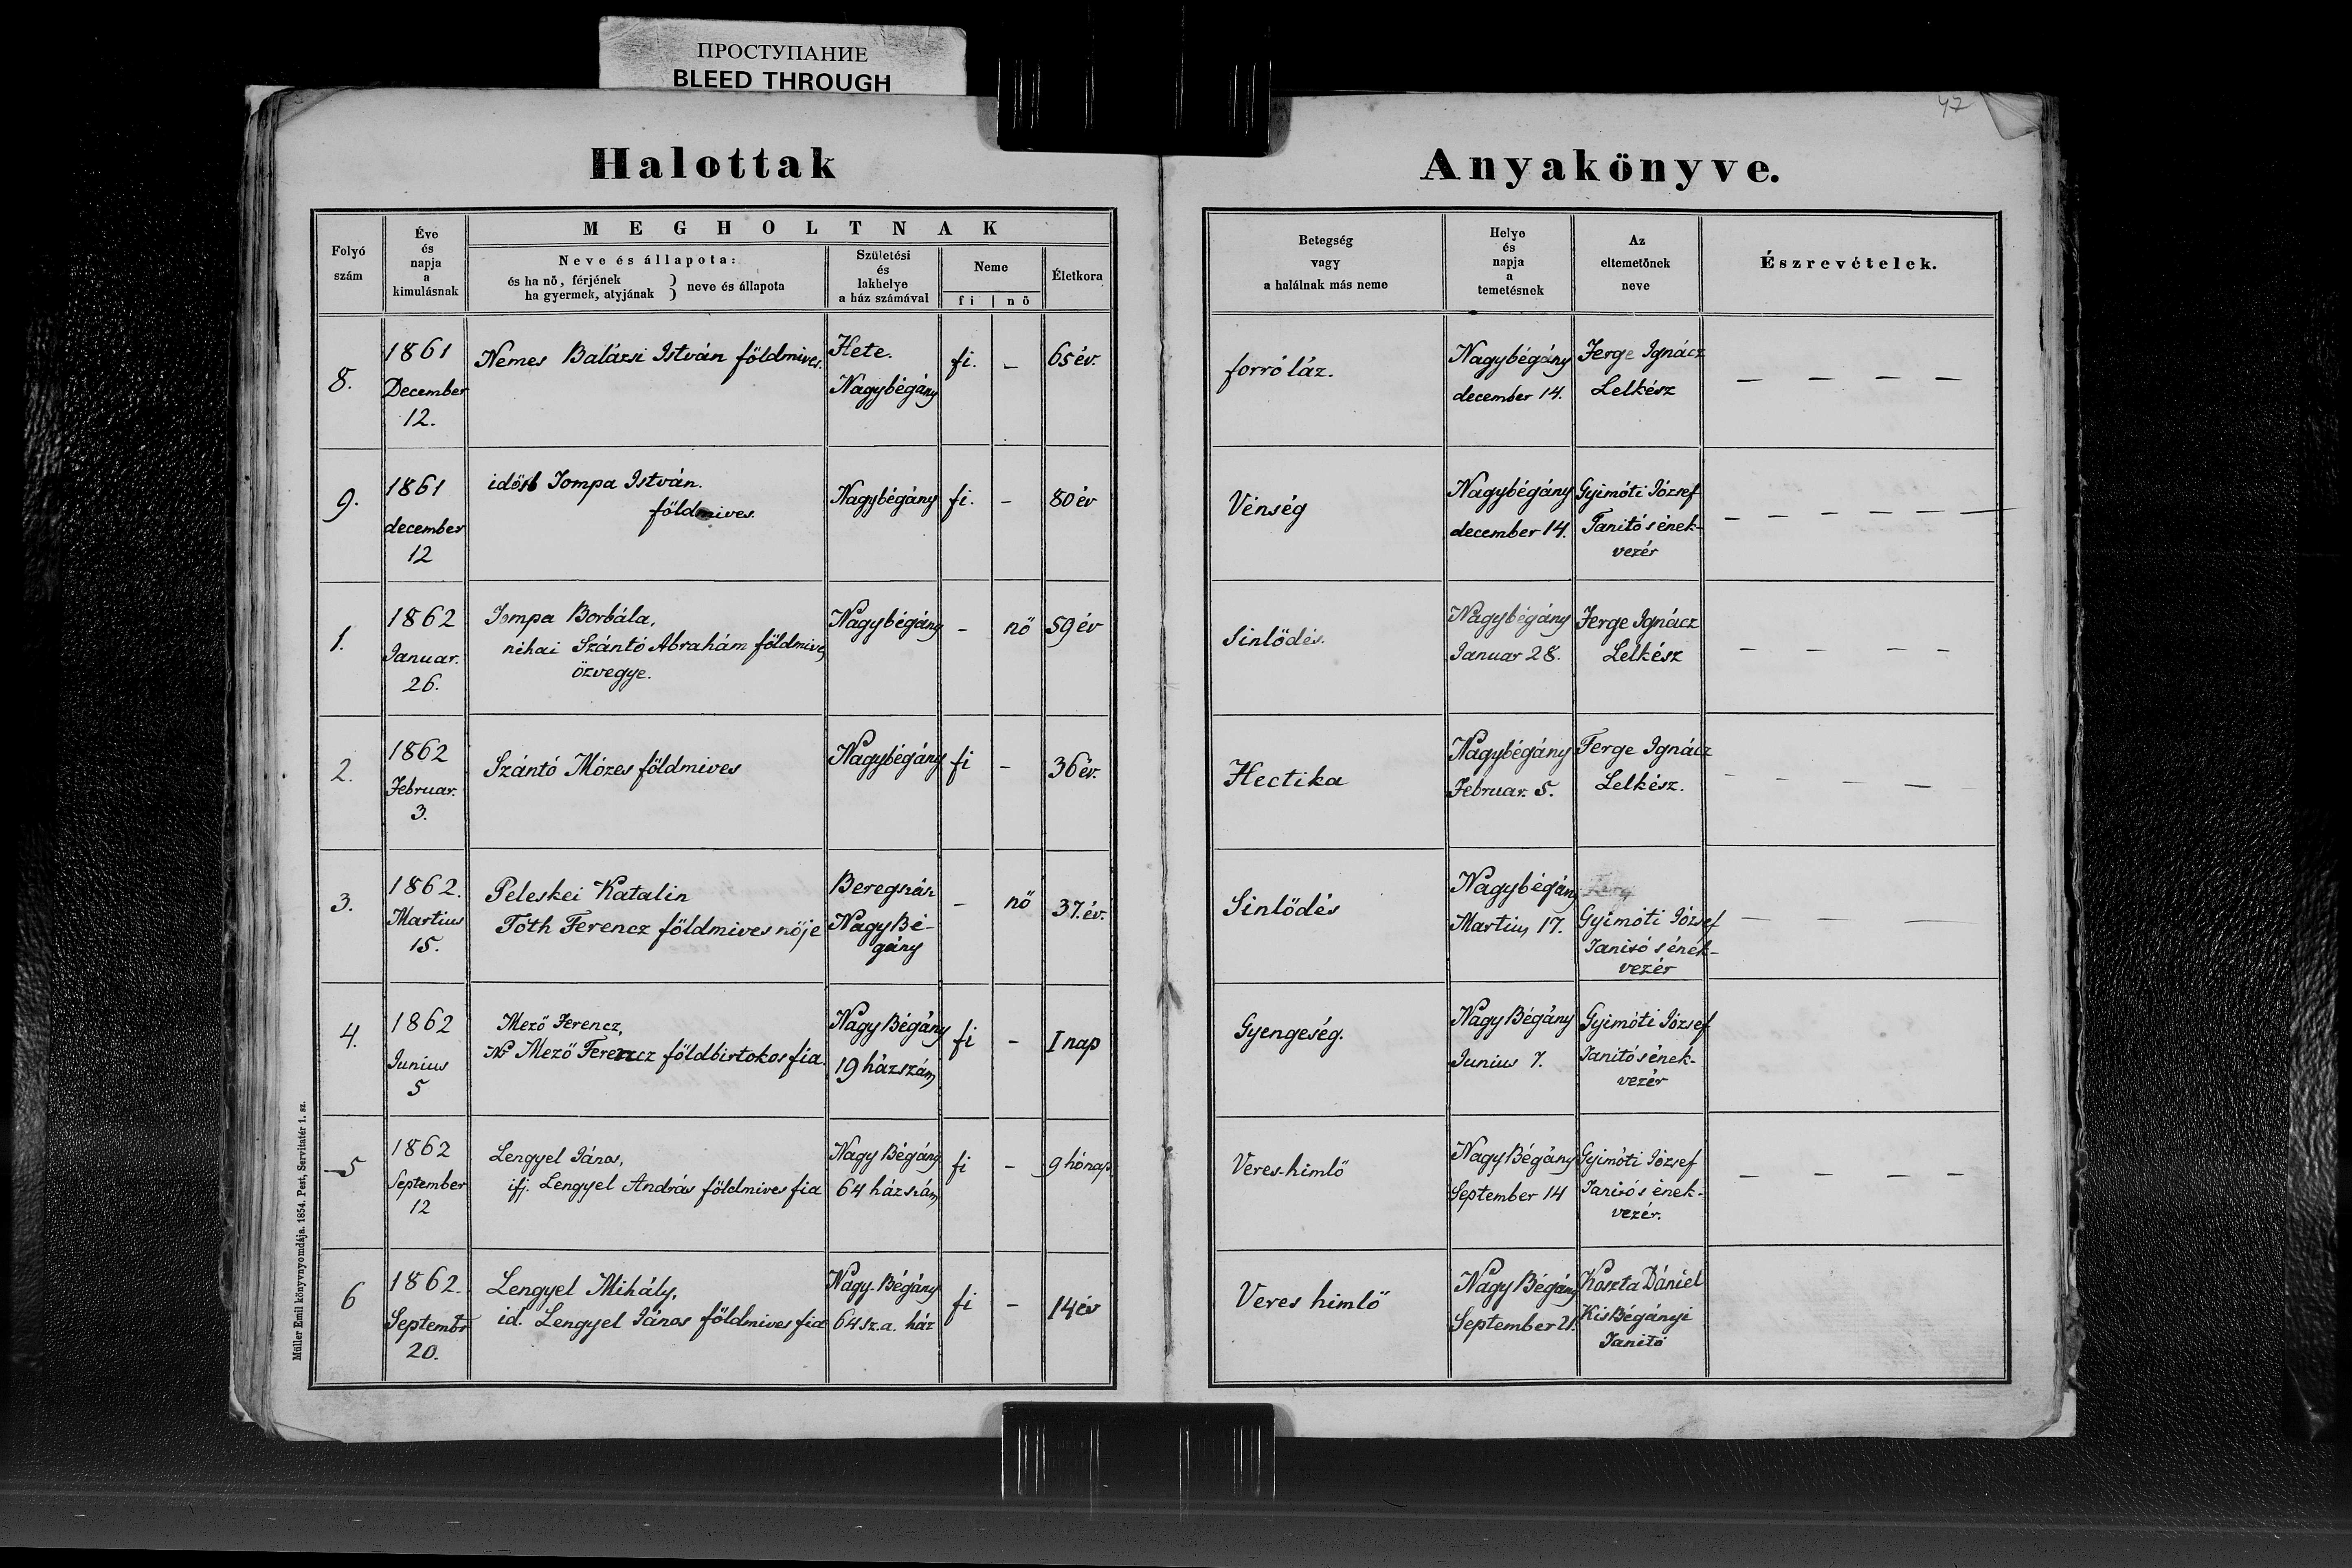 ПРОСТУПАНИЕ
BLEED THROUGH
47
Halottak
Anyakönyve.
Folyó
szám
Éve
és
napja
a
kimulásnak
MEGHOLTNAK
Neve és állapota:
és ha nő, férjének
ha gyermek, atyjának } neve és állapota
Születési
és
lakhelye
a ház számával
Neme
fi | nő
Életkora
Betegség
vagy
a halálnak más neme
Helye
és
napja
a
temetésnek
Az
eltemetőnek
neve
Észrevételek.
8.
1861
December
12.
Nemes Balázsi István földmives.
Hete.
Nagybégány
fi.
–
65 év.
forró láz.
Nagybégány
december 14.
Ferge Ignácz
Lelkész
— — — —
9.
1861
december
12
idősb Tompa István.
földmives.
Nagybégány
fi.
–
80 év
Vénség
Nagybégány
december 14.
Gyimóti József
Tanító s ének-
vezér
— — — — — —
1.
1862
Januar.
26.
Tompa Borbála,
néhai Szántó Abrahám földmives
özvegye.
Nagybégány
–
nő
59 év
Sinlődés.
Nagybégány
Januar 28.
Ferge Ignácz
Lelkész
— — — —
2.
1862
Februar.
3.
Szántó Mózes földmives
Nagybégány
fi
–
36 év.
Hectika
Nagybégány
Februar. 5.
Ferge Ignácz
Lelkész.
— — — —
3.
1862.
Martius
15.
Peleskei Katalin
Tóth Ferencz földmives nője
Beregszász
Nagy Bé-
gány
–
nő
37. év.
Sinlődés
Nagybégány
Martius 17.
Gyimóti József
Tanító s ének-
vezér
— — —
4.
1862
Junius
5
Mező Ferencz,
Mező Ferencz földbirtokos fia.
Nagy Bégány
19 házszám
fi
–
I nap
Gyengeség.
Nagy Bégány
Junius 7.
Gyimóti József
Tanító s ének-
vezér
5
1862
September
12
Lengyel János,
ifj. Lengyel András földmives fia
Nagy Bégány
64 házszám
fi
–
9 hónap
Veres-himlő
Nagy Bégány
September 14
Gyimóti József
Tanító s ének-
vezér.
— — — —
6
1862.
Septembr
20.
Lengyel Mihály,
id. Lengyel János földmives fia
Nagy-Bégány
64 sz. a. ház
fi
–
14 év
Veres himlő
Nagy Bégány
September 21.
Koszta Dániel
Kis Bégányi
Tanító
Müller Emil könyvnyomdája. 1854. Pest, Servitatér 1. sz.